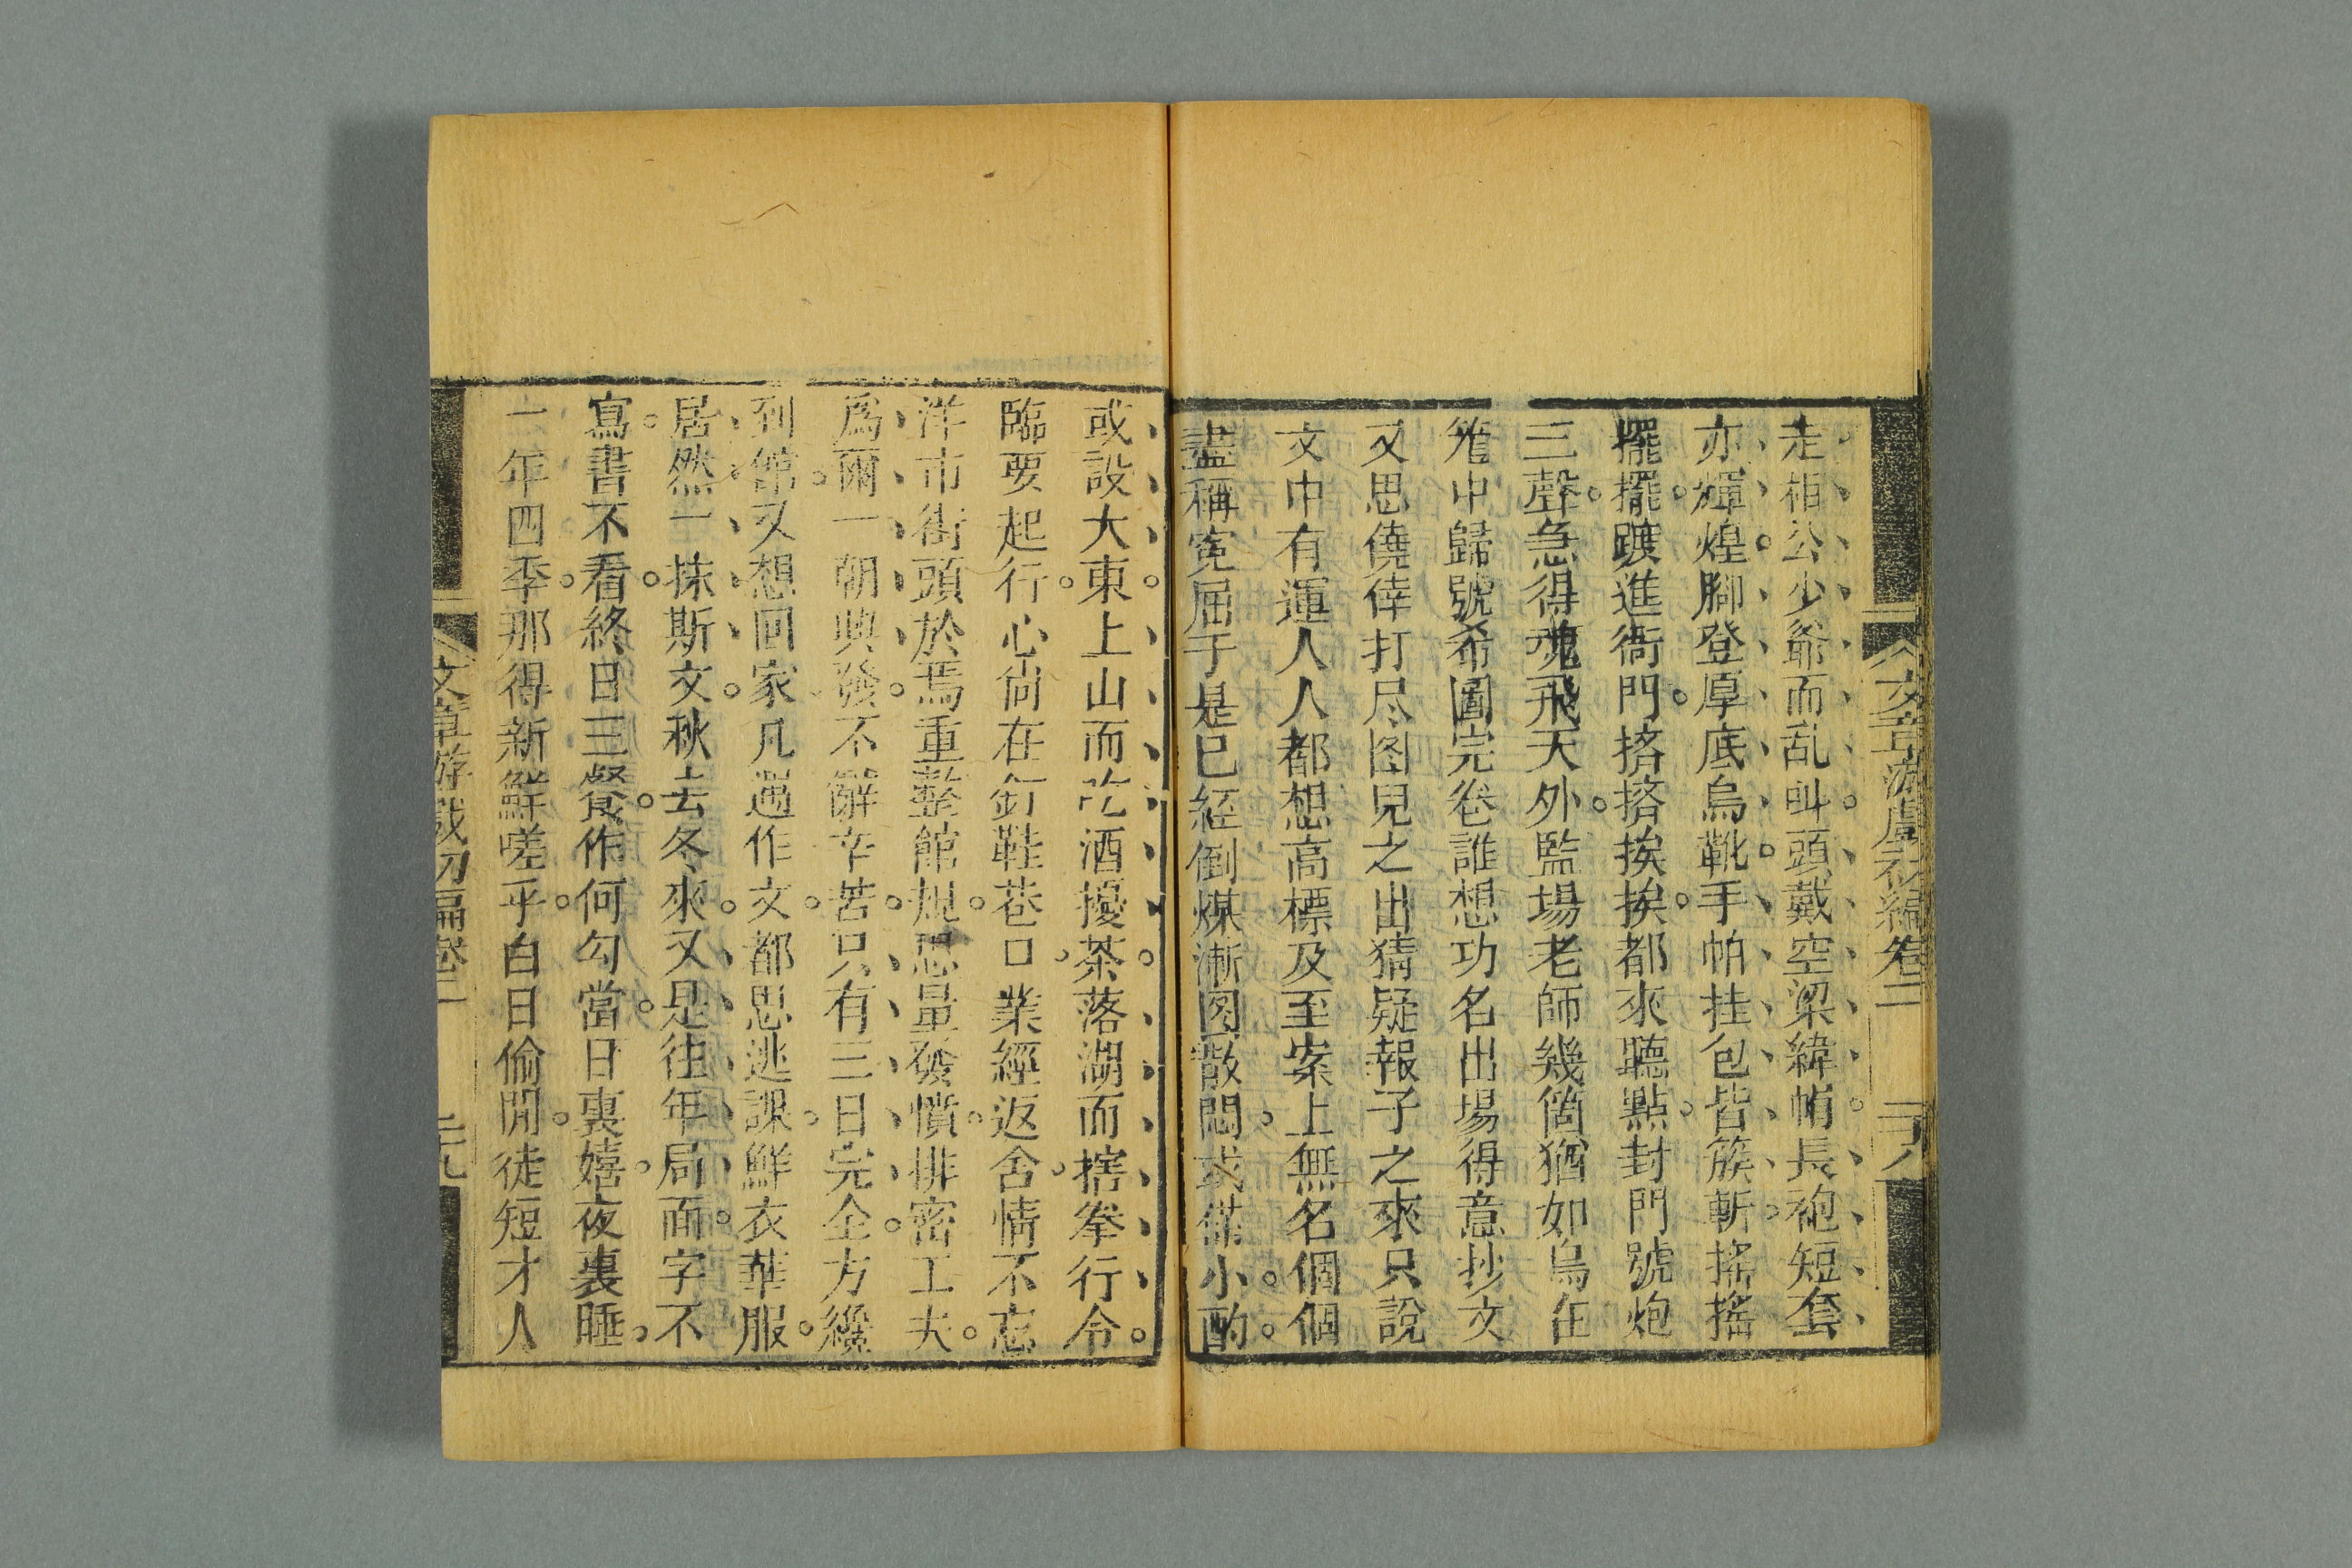 走相公少爺而乱呌頭戴空梁緯帽長袍短套
亦輝煌腳登厚底烏靴手帕挂包皆簇斬搖搖
擺擺踱進衙門挤挤挨挨都來聽點封門號炮
三聲急得魂飛天外監場老師幾箇猶如烏在
中歸號希圖完卷誰想功名出場得意抄文
又思僥倖打尽图見之出猜疑報子之來只說
文中有運人人都想高標及至案上無名個個
盡稱寃屈于是已経倒煤漸図散悶或謀小酌
或設大東上山而吃酒擾茶落湖而搳拳行令
臨要起行心尙在釘鞋巷口業經返舍情不忘
洋市街頭於焉重整館規思量發憤排密工夫
爲爾一朝興發不辭辛苦只有三日完全方纔
到館又想回家凡遇作文都思逃課鮮衣華服
居然一抹斯文秋去冬來又是往年局面字不
寫書不看終日三餐作何勾當日裏嬉夜裏睡
一年四季那得新鮮嗟乎白日偷閒徒短才人
文章游戲初編卷二 二十九